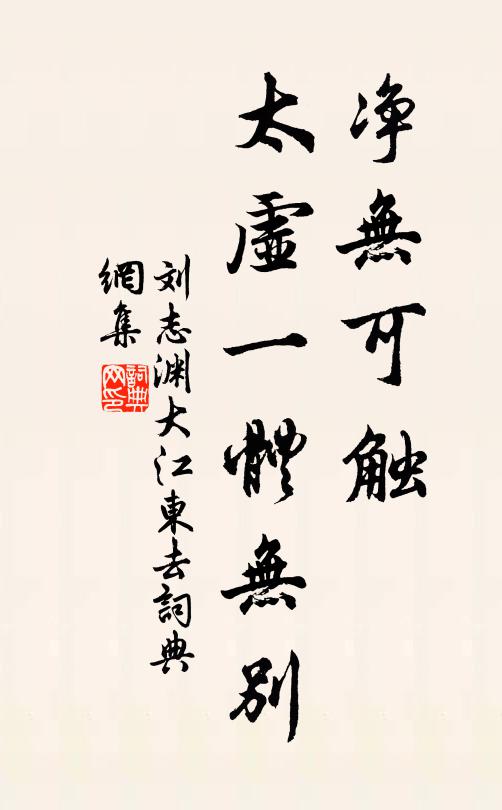 净無可触
太虛一體無別
刘志渊大江東去詞典
網集
詞典网印